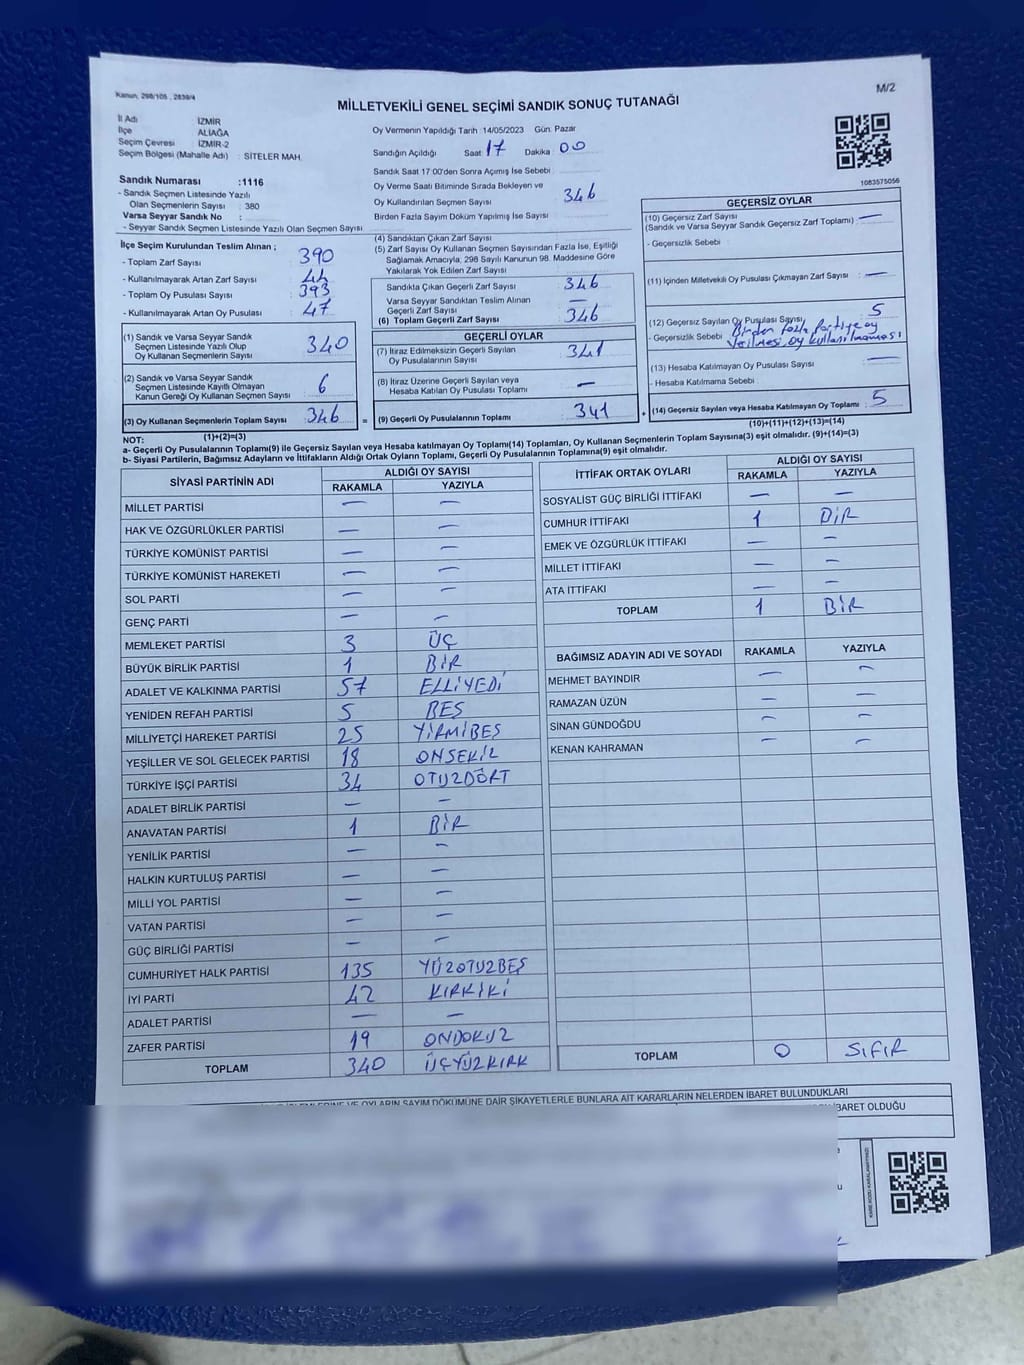 Kanun, 298/105 , 2839/4
M/2
MİLLETVEKİLİ GENEL SEÇİMİ SANDIK SONUÇ TUTANAĞI
İl Adı İZMİR
İlçe ALİAĞA
Seçim Çevresi İZMİR-2
Seçim Bölgesi (Mahalle Adı) : SİTELER MAH.
Sandık Numarası :1116
- Sandık Seçmen Listesinde Yazılı
Olan Seçmenlerin Sayısı : 380
Varsa Seyyar Sandık No :
- Seyyar Sandık Seçmen Listesinde Yazılı Olan Seçmen Sayısı
İlçe Seçim Kurulundan Teslim Alınan ;
- Toplam Zarf Sayısı : 390
- Kullanılmayarak Artan Zarf Sayısı : 44
- Toplam Oy Pusulası Sayısı : 393
- Kullanılmayarak Artan Oy Pusulası : 47
(1) Sandık ve Varsa Seyyar Sandık
Seçmen Listesinde Yazılı Olup
Oy Kullanan Seçmenlerin Sayısı : 340
(2) Sandık ve Varsa Seyyar Sandık
Seçmen Listesinde Kayıtlı Olmayan
Kanun Gereği Oy Kullanan Seçmen Sayısı : 6
(3) Oy Kullanan Seçmenlerin Toplam Sayısı : 346 =
(1)+(2)=(3)
Oy Vermenin Yapıldığı Tarih :14/05/2023 Gün: Pazar
Sandığın Açıldığı Saat 17 Dakika : 00
Sandık Saat 17:00'den Sonra Açımış İse Sebebi :
Oy Verme Saati Bitiminde Sırada Bekleyen ve
Oy Kullandırılan Seçmen Sayısı : 346
Birden Fazla Sayım Döküm Yapılmış İse Sayısı :
(4) Sandıktan Çıkan Zarf Sayısı :
(5) Zarf Sayısı Oy Kullanan Seçmen Sayısından Fazla İse, Eşitliği
Sağlamak Amacıyla, 298 Sayılı Kanunun 98. Maddesine Göre
Yakılarak Yok Edilen Zarf Sayısı :
Sandıkta Çıkan Geçerli Zarf Sayısı : 346
Varsa Seyyar Sandıktan Teslim Alınan
Geçerli Zarf Sayısı : —
(6) Toplam Geçerli Zarf Sayısı : 346
GEÇERLİ OYLAR
(7) İtiraz Edilmeksizin Geçerli Sayılan
Oy Pusulalarının Sayısı : 341
(8) İtiraz Üzerine Geçerli Sayılan veya
Hesaba Katılan Oy Pusulası Toplamı : —
(9) Geçerli Oy Pusulalarının Toplamı : 341 +
1083575056
GEÇERSİZ OYLAR
(10) Geçersiz Zarf Sayısı
(Sandık ve Varsa Seyyar Sandık Geçersiz Zarf Toplamı) : —
- Geçersizlik Sebebi :
(11) İçinden Milletvekili Oy Pusulası Çıkmayan Zarf Sayısı : —
(12) Geçersiz Sayılan Oy Pusulası Sayısı : 5
- Geçersizlik Sebebi : Birden fazla Partiye oy
verilmesi, oy kullanılmaması
(13) Hesaba Katılmayan Oy Pusulası Sayısı : —
- Hesaba Katılmama Sebebi :
(14) Geçersiz Sayılan veya Hesaba Katılmayan Oy Toplamı : 5
(10)+(11)+(12)+(13)=(14)
NOT:
a- Geçerli Oy Pusulalarının Toplamı(9) ile Geçersiz Sayılan veya Hesaba katılmayan Oy Toplamı(14) Toplamları, Oy Kullanan Seçmenlerin Toplam Sayısına(3) eşit olmalıdır. (9)+(14)=(3)
b- Siyasi Partilerin, Bağımsız Adayların ve İttifakların Aldığı Ortak Oyların Toplamı, Geçerli Oy Pusulalarının Toplamına(9) eşit olmalıdır.
SİYASİ PARTİNİN ADI ALDIĞI OY SAYISI
RAKAMLA YAZIYLA
MİLLET PARTİSİ — —
HAK VE ÖZGÜRLÜKLER PARTİSİ — —
TÜRKİYE KOMÜNİST PARTİSİ — —
TÜRKİYE KOMÜNİST HAREKETİ — —
SOL PARTİ — —
GENÇ PARTİ — —
MEMLEKET PARTİSİ 3 ÜÇ
BÜYÜK BİRLİK PARTİSİ 1 BİR
ADALET VE KALKINMA PARTİSİ 57 ELLİYEDİ
YENİDEN REFAH PARTİSİ 5 BEŞ
MİLLİYETÇİ HAREKET PARTİSİ 25 YİRMİBEŞ
YEŞİLLER VE SOL GELECEK PARTİSİ 18 ONSEKİZ
TÜRKİYE İŞÇİ PARTİSİ 34 OTUZDÖRT
ADALET BİRLİK PARTİSİ — —
ANAVATAN PARTİSİ 1 BİR
YENİLİK PARTİSİ — —
HALKIN KURTULUŞ PARTİSİ — —
MİLLİ YOL PARTİSİ — —
VATAN PARTİSİ — —
GÜÇ BİRLİĞİ PARTİSİ — —
CUMHURİYET HALK PARTİSİ 135 YÜZOTUZBEŞ
İYİ PARTİ 42 KIRKİKİ
ADALET PARTİSİ — —
ZAFER PARTİSİ 19 ONDOKUZ
TOPLAM 340 ÜÇYÜZKIRK
İTTİFAK ORTAK OYLARI ALDIĞI OY SAYISI
RAKAMLA YAZIYLA
SOSYALİST GÜÇ BİRLİĞİ İTTİFAKI — —
CUMHUR İTTİFAKI 1 BİR
EMEK VE ÖZGÜRLÜK İTTİFAKI — —
MİLLET İTTİFAKI — —
ATA İTTİFAKI — —
TOPLAM 1 BİR
BAĞIMSIZ ADAYIN ADI VE SOYADI RAKAMLA YAZIYLA
MEHMET BAYINDIR — —
RAMAZAN ÜZÜN — —
SİNAN GÜNDOĞDU — —
KENAN KAHRAMAN — —
TOPLAM 0 SIFIR
OYLARIN SAYIM DÖKÜMÜNE DAİR ŞİKAYETLERLE BUNLARA AİT KARARLARIN NELERDEN İBARET BULUNDUKLARI
İBARET OLDUĞU